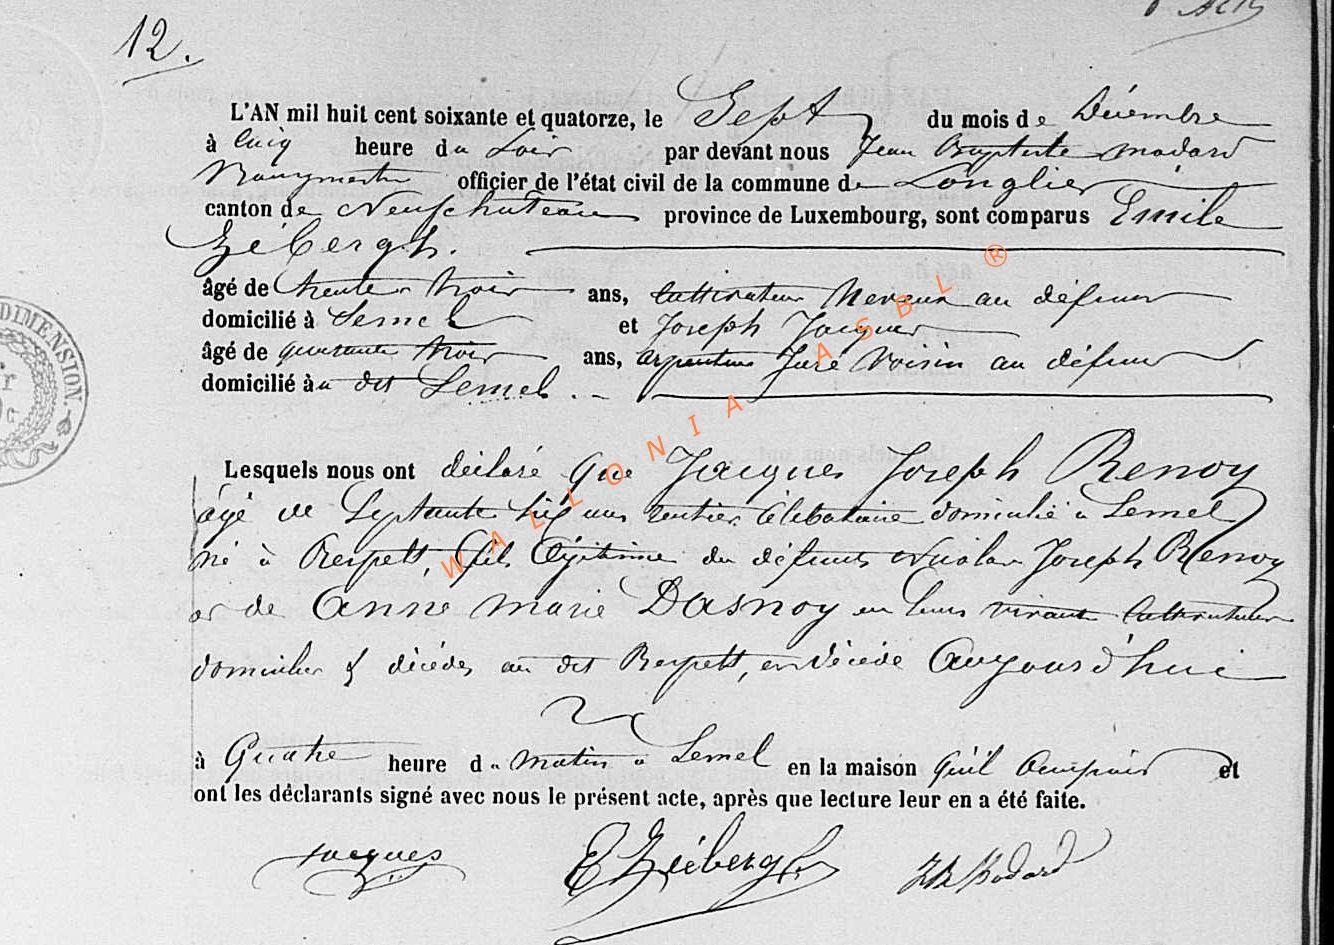 12.
L'AN mil huit cent soixante et quatorze, le Sept du mois de Décembre
à Cinq heure du Soir par devant nous Jean Baptiste Modard
Bourgmestre officier de l'état civil de la commune de Longlier
canton de Neufchateau province de Luxembourg, sont comparus Emile
Liébergh.
âgé de trente trois ans, Cultivateur Neveux au défunt
domicilié à Semel et Joseph Jacques
âgé de quarante trois ans, arpenteur Juré Voisin au défunt
domicilié à u dit Semel
DIMENSION.
Lesquels nous ont déclaré que Jacques Joseph Renoy
âgé de Septante six ans rentier Célibataire domicilié à Semel
né à Respelt, fils légitime de défunts Nicolas Joseph Renoy
et de Anne Marie Dasnoy en leurs vivants Cultivateurs
domiciliés & décédés au dit Respelt, est décédé Aujourd'hui
à Quatre heure du matin à Semel en la maison qu'il occupait et
ont les déclarants signé avec nous le présent acte, après que lecture leur en a été faite.
Jacques E Liébergh JB Modard
WALLONIA ASBL ®